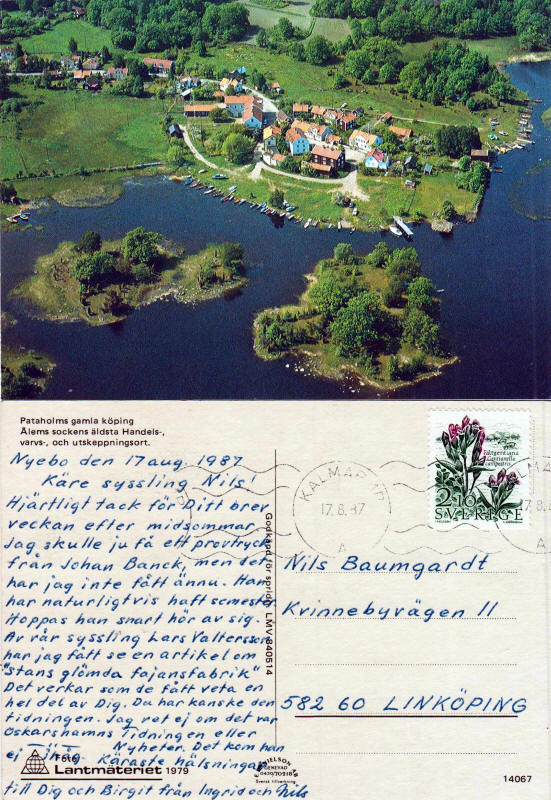 Pataholms gamla köping
Ålems sockens äldsta Handels-,
varvs-, och utskeppningsort.
Nyebo den 17 aug. 1987
Käre syssling Nils!
Hjärtligt tack för Ditt brev
veckan efter midsommar.
Jag skulle ju få ett provtryck
från Johan Banck, men det
har jag inte fått ännu. Han
har naturligtvis haft semester.
Hoppas han snart hör av sig.
Av vår syssling Lars Valtersson
har jag fått se en artikel om
"Stans glömda fajansfabrik"
Det verkar som de fått veta en
hel del av Dig. Du har kanske den
tidningen. Jag vet ej om det var
Oskarshamns Tidningen eller
Nyheter. Det kom han
ej ihåg. Käraste hälsningar
till Dig och Birgit från Ingrid och Nils
Foto
Lantmäteriet 1979
Godkänd för spridn. LMV 840514
GENEVAD
0430/70218
Svensk tillverkning.
14067
KALMAR
17.8.87
A
17.8.
A
Fältgentiana
Gentianella
campestris
2.10
SVERIGE
Nils Baumgardt
Kvinnebyvägen 11
582 60 LINKÖPING